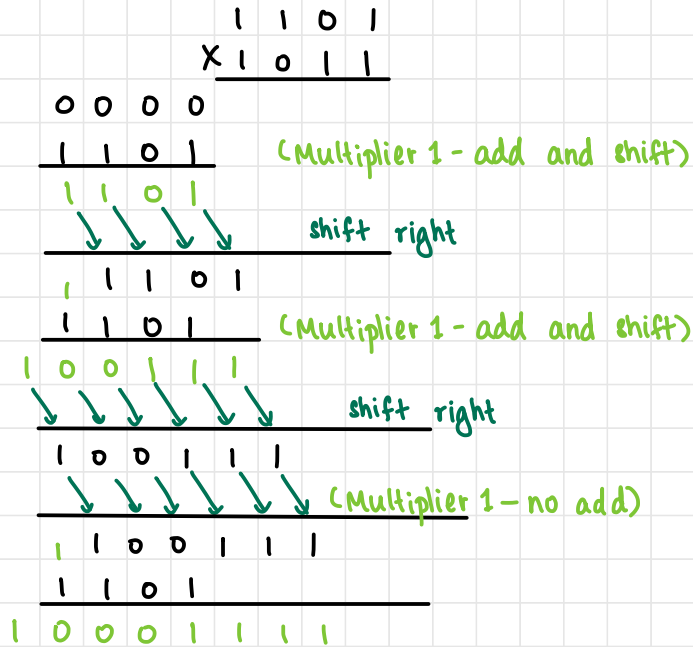 1 1 0 1
X 1 0 1 1
0 0 0 0
1 1 0 1 (Multiplier 1 - add and shift)
1 1 0 1
shift right
1 1 1 0 1
1 1 0 1 (Multiplier 1 - add and shift)
1 0 0 1 1 1
shift right
1 0 0 1 1 1
(Multiplier 1 - no add)
1 1 0 0 1 1 1
1 1 0 1
1 0 0 0 1 1 1 1